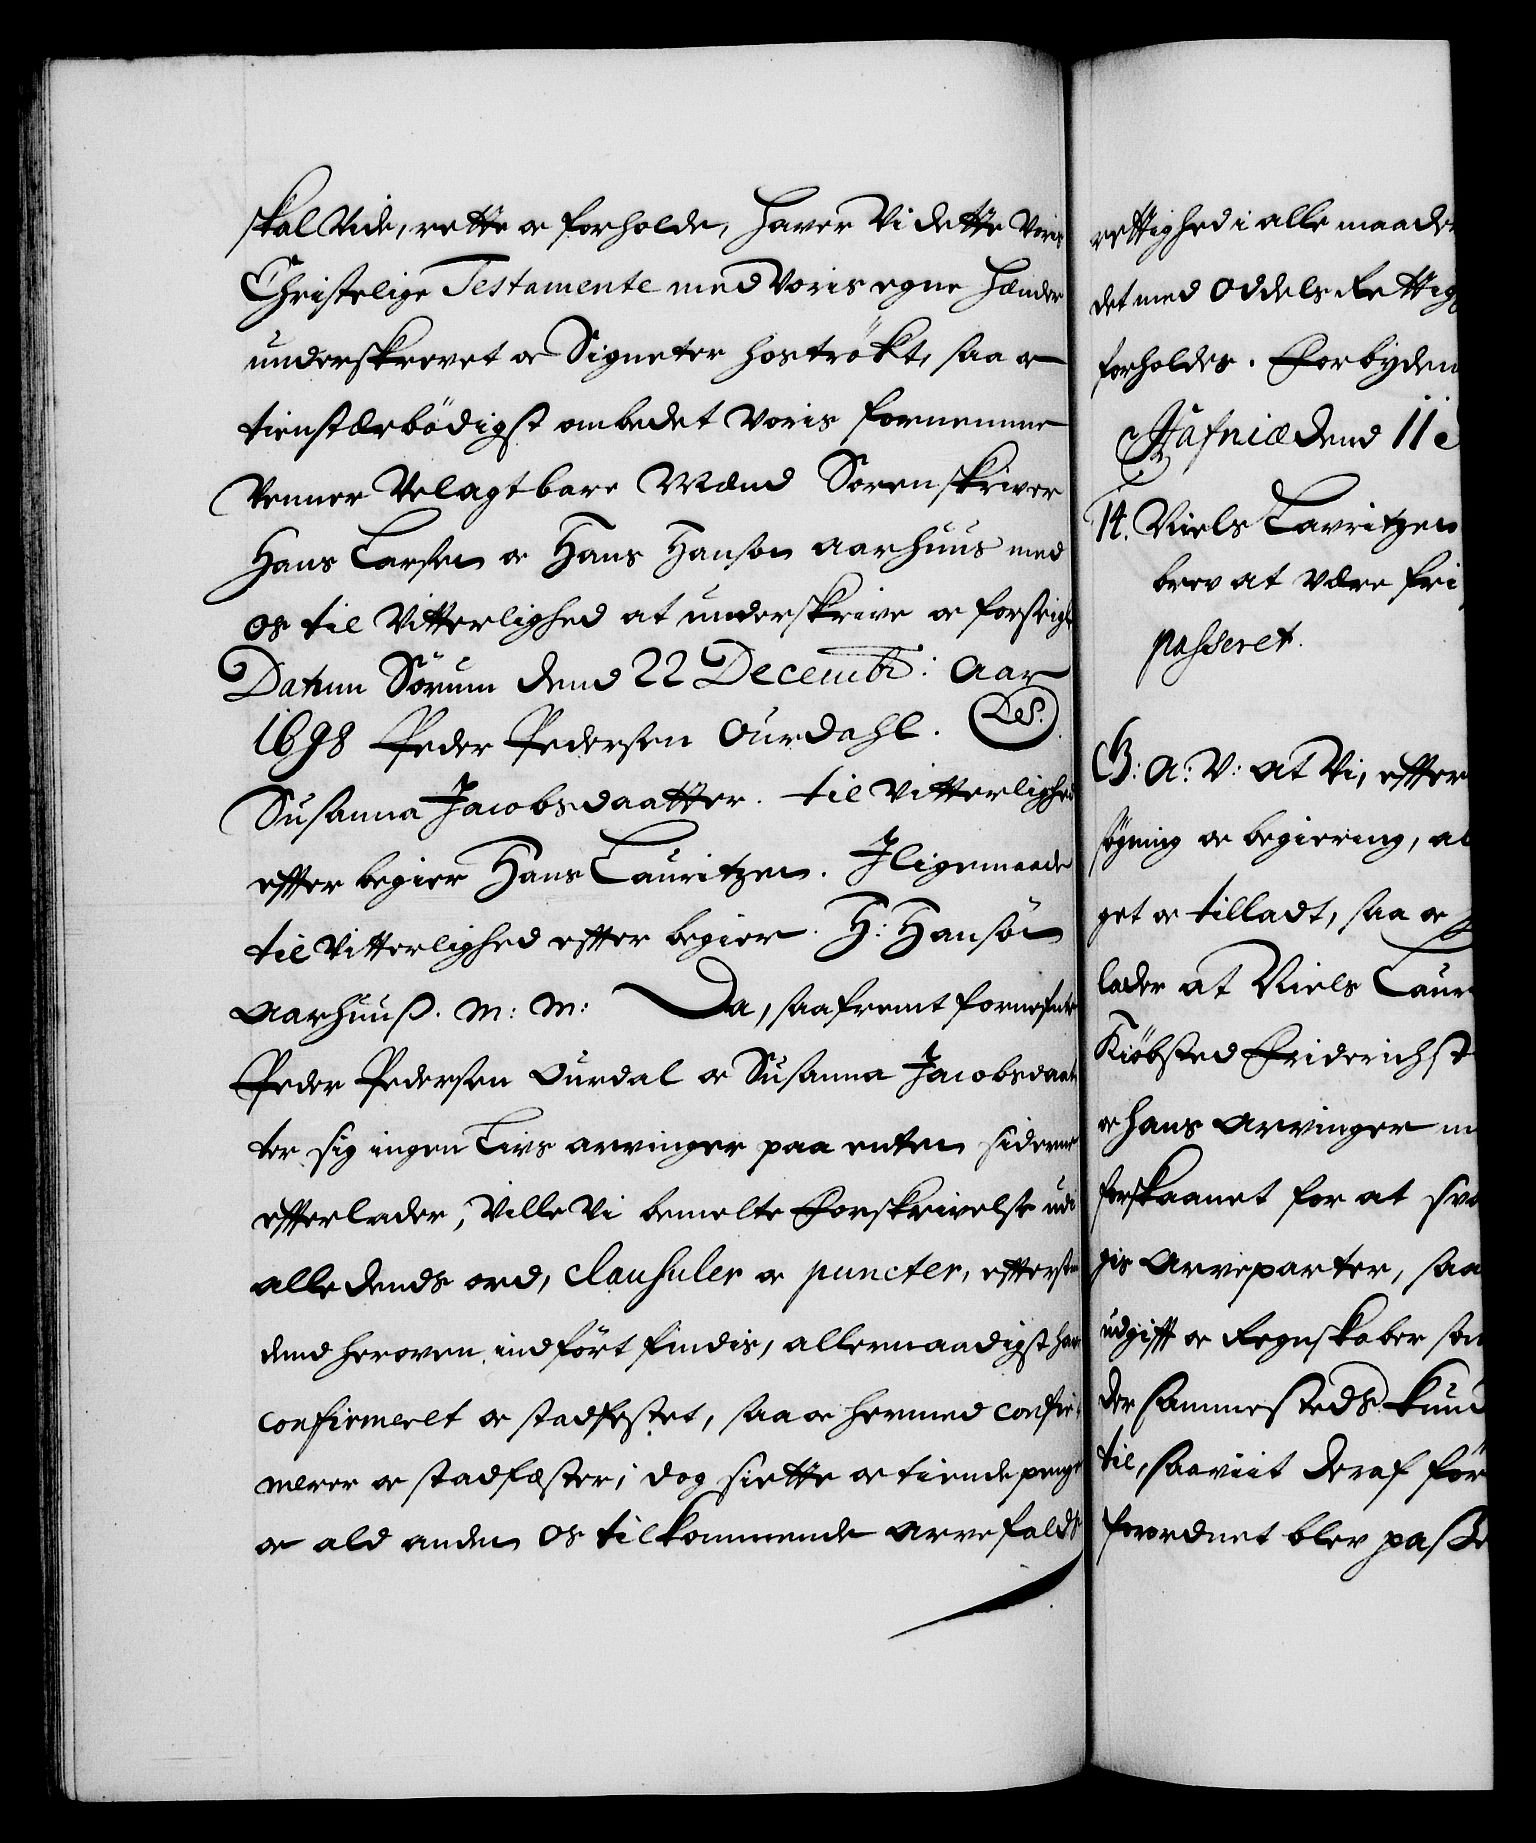 skal Vide, rette oc forholde, haver Vi dette Voris
Christelige Testamente med Voris egne Hænder
underskrevet oc Signeter hoströkt, saa oc
tienstærbödigst ombedet Voris fornemme
Venner Velagtbare Mænd Sorenskriver
Hans Larsen oc Hans Hanson Aarhuus med
os til Vitterlighed at underskrive oc forseigle
Datum Sörum dend 22 Decembr: Aar
1698 Peder Pedersen Ourdahl. L.S.
Susanna Jacobsdaatter. til Vitterlighed
effter begier Hans Lauritzen. Iligemaade
til Vitterlighed effter begier. H: Hansön
Aarhuuß. M: M: Da, saafremt fornefnte
Peder Pedersen Ourdal oc Susanna Jacobsdaat
ter sig ingen Livs arvinger paa enten siderne
effterlader, Ville Vi bemelte Forskrivelse udi
alle dends ord, clausuler oc puncter, effterson
dend heroven indfört findis, allernaadigst have
confirmeret oc stadfestet, saa oc hermed confir¬
merer oc stadfæster; dog siette oc tiende penge
oc ald anden os tilkommende arvefalds
rettighed i alle maader
det med Oddels Rettig
forholdes. Forbyden
Hafniæ dend 11
14. Niels Lavritzen
brev at være fri
passeret.
G: A: V: at Vi, effter
søgning oc begiering, al
get oc tilladt, saa oc
lader at Niels Laur
Kiöbsted Friderichst
oc hans Arvinger m
forskaanet for at sva
gis Arveparter, saa
udgifft oc Regnskaber som
der sammesteds kund
til, saaviit deraf för
forordnet blev paße